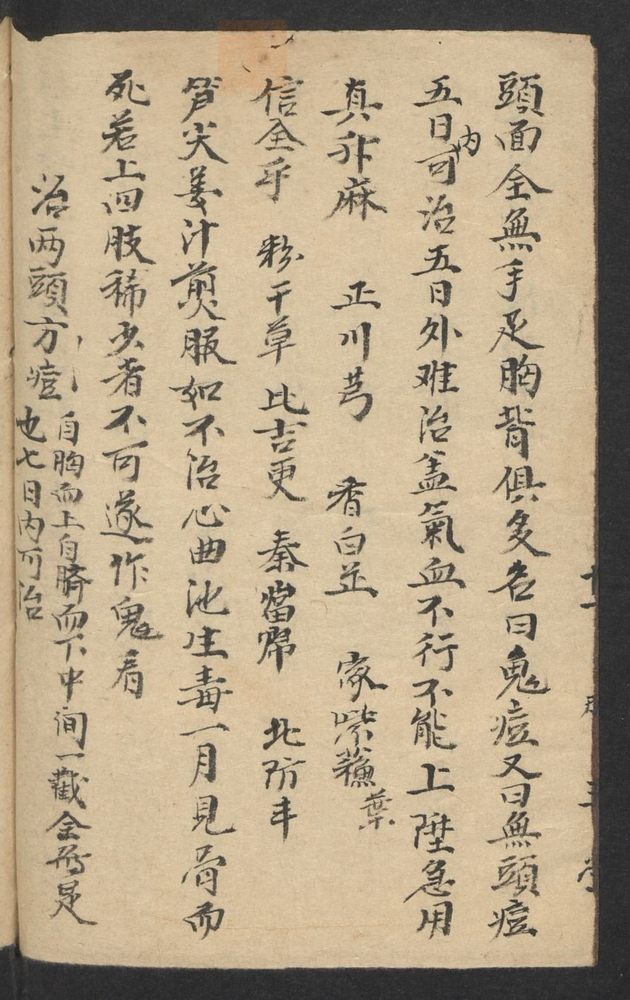 頭面全無手足胸背俱多名曰鬼痘又曰無頭痘
五日內可治五日外难治盖氣血不行不能上陞急用
真升麻 正川芎 香白芷 家紫蘇葉
信全乎 粉干草 比吉更 秦當歸 北防丰
笋尖姜汁煎服如不治心曲池生毒一月見骨而
死若上四肢稀少者不可遂作鬼看
治两頭方痘 自胸而上自臍而下中间一截全無是
也七日内可治